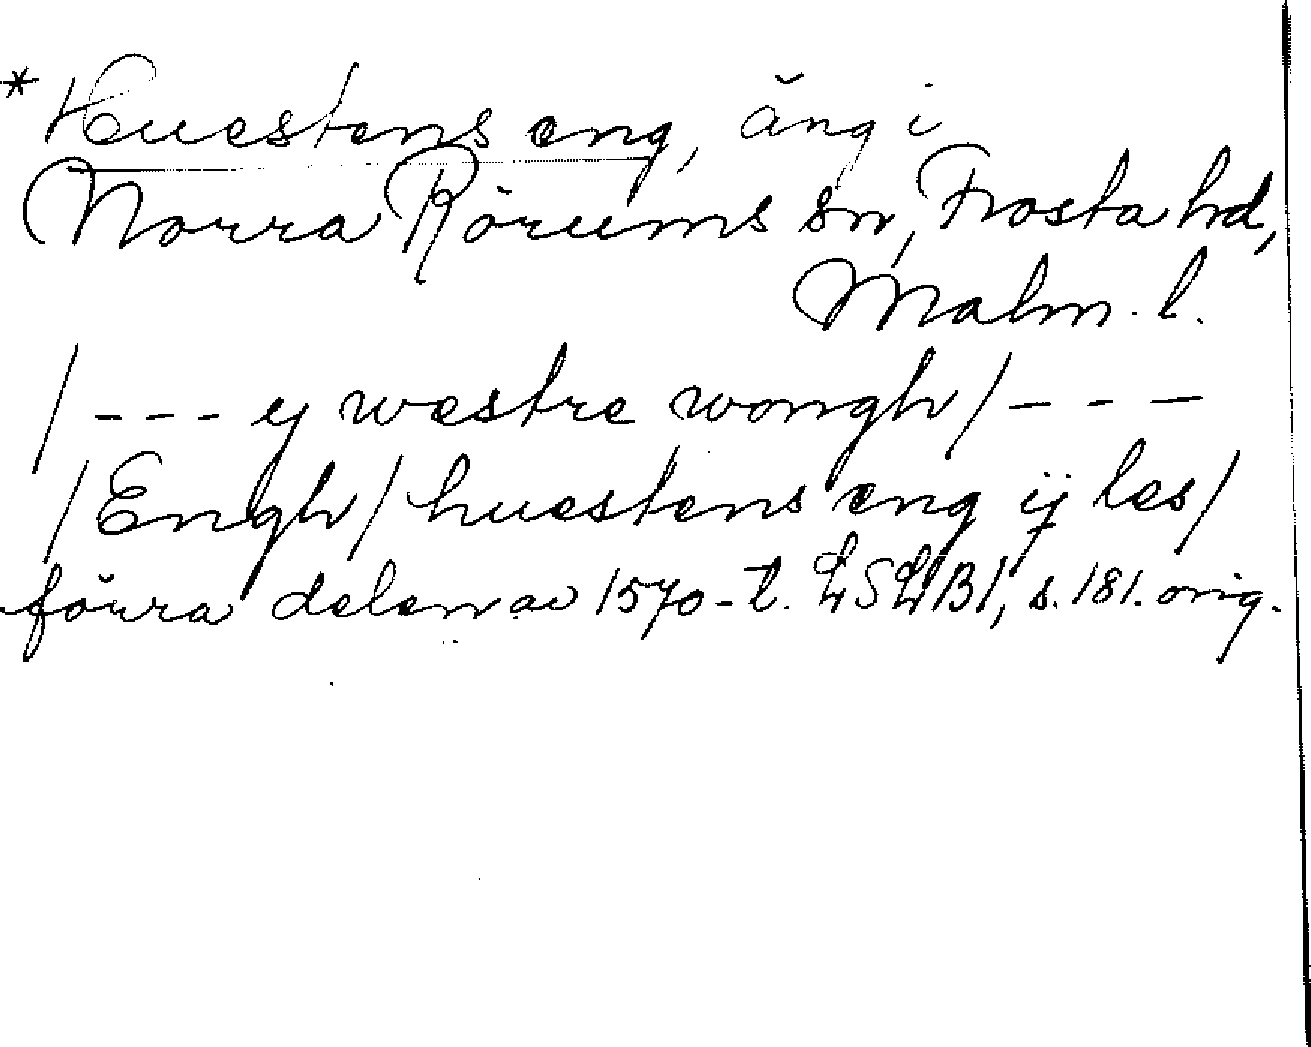 * Huestens eng, äng i
Norra Rörums sn, Frosta hd,
Malm. l.
/--- y westre wongh/---
/Engh/ huestens eng ij les/
förra delen av 1570-t. LSLB1, s. 181. orig.